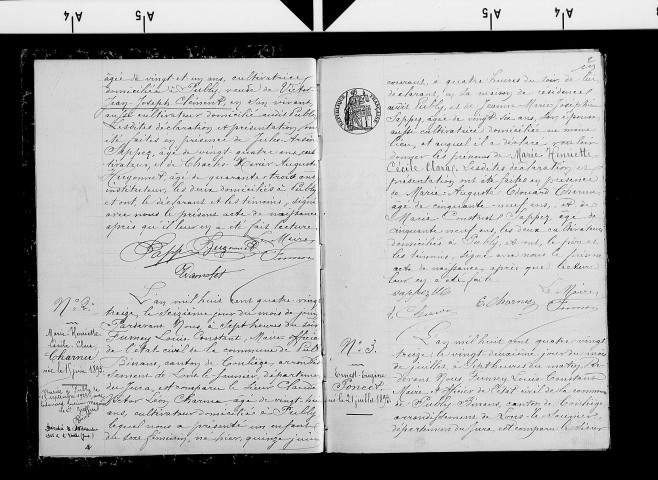 âgée de vingt et un ans, cultivatrice
domiciliée à Publy, veuve de Victor
Jean-Joseph Clément, en son vivant,
aussi cultivateur domicilié audit Publy.
Lesdites déclaration et présentation, ont
été faites en présence de Jules
Pappez, âgé de vingt quatre ans, cul-
tivateur, et de Charles Xavier Auguste
Huguenet, âgé de quarante trois ans,
instituteur, les deux domiciliés à Publy
et ont, le déclarant et les témoins, signé
avec nous le présent acte de naissance
après qu'il leur en a été fait lecture.
Le Maire,
N° 2.
Marie Henriette
Cécile Clara
Charnu
née le 15 juin 1893.
L'an mil huit cent quatre vingt
treize, le seizième jour du mois de juin
Pardevant Nous, à sept heures du soir
Furney Louis Constant, Maire officier
de l'état civil de la commune de Publy
Binans, canton de Conliège, arrondis-
sement de Lons le Saunier, département
du Jura, est comparu le sieur Claude
Victor Léon Charnu âgé de vingt huit
ans, cultivateur domicilié à Publy
lequel nous a présenté un enfant
du sexe féminin, née hier, quinze juin
courant, à quatre heures du soir, de lui
déclarant, en sa maison de résidence
audit Publy, et de Jeanne Marie Joséphine
Pappez, âgée de vingt six ans, son épouse,
aussi cultivatrice domiciliée au même
lieu, et auquel il a déclaré vouloir
donner les prénoms de Marie Henriette
Cécile Clara. Lesdites déclaration et
présentation ont été faites en présence
de Marie Auguste Edouard Charnu
âgé de cinquante neuf ans, et de
Marie Constant Pappez, âgé de
cinquante neuf ans, les deux cultivateurs
domiciliés à Publy, et ont, le père et
les témoins, signé avec nous le présent
acte de naissance, après que lecture
leur en a été faite.
Le Maire,
N° 3.
Ernest Eugène
Poncet
né le 21 juillet 1893.
L'an mil huit cent quatre vingt
treize le vingt deuxième jour du mois
de juillet, à sept heures du matin, Par
devant Nous, Furney Louis Constant
Maire et officier de l'état civil de la commune
de Publy Binans, canton de Conliège
arrondissement de Lons-le-Saunier
département du Jura, est comparu le sieur